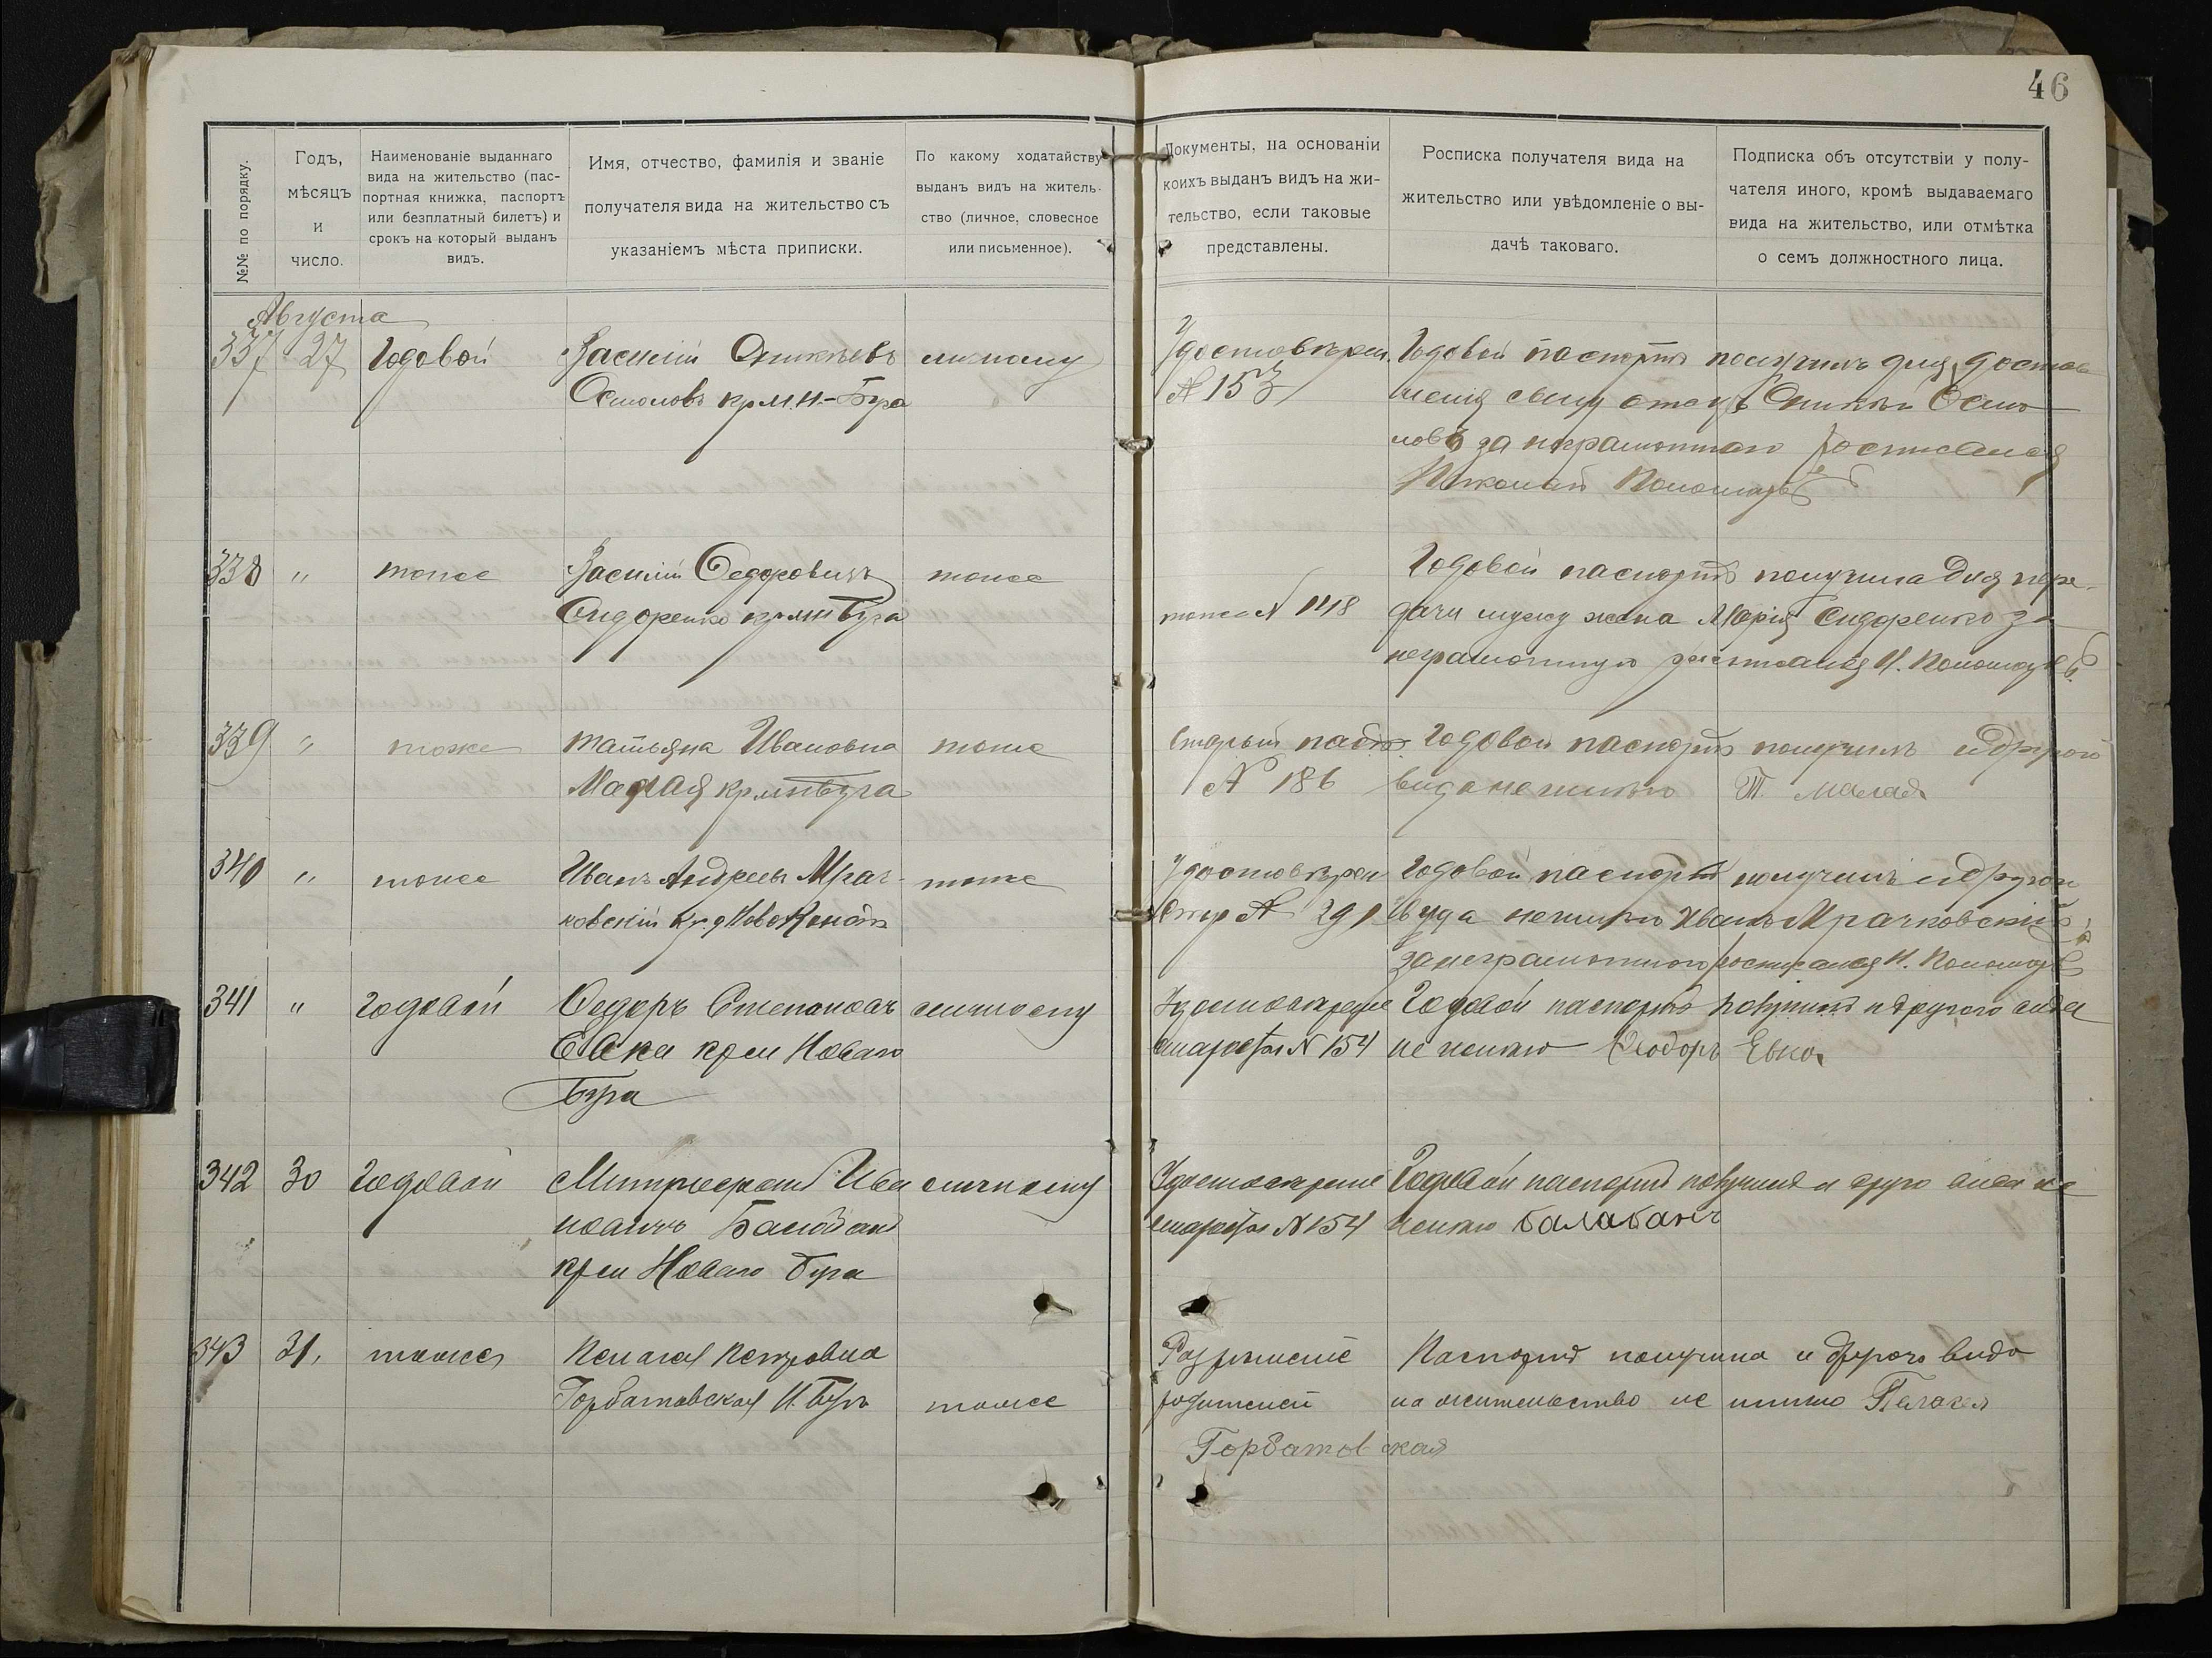 46
№№ по порядку.
Годъ,
мѣсяцъ
и
число.
Наименованіе выданнаго
вида на жительство (пас-
портная книжка, паспортъ
или безплатный билетъ) и
срокъ на который выданъ
видъ.
Имя, отчество, фамилія и званіе
получателя вида на жительство съ
указаніемъ мѣста приписки.
По какому ходатайству
выданъ видъ на житель-
ство (личное, словесное
или письменное).
Документы, на основаніи
коихъ выданъ видъ на жи-
тельство, если таковые
представлены.
Росписка получателя вида на
жительство или увѣдомленіе о вы-
дачѣ таковаго.
Подписка объ отсутствіи у полу-
чателя иного, кромѣ выдаваемаго
вида на жительство, или отмѣтка
о семъ должностного лица.
Августа
337 27 Годовой Василій личному Удостовѣрен. Годовой паспортъ получилъ для достав
кр. м. Н.-Буга № 153 сыну отецъ
за неграмотнаго росписался
Николай
338 " тоже Василій Федоровичъ тоже Годовой паспортъ получила для пере-
Сидоренко кр. м. Н Буга тоже № 1418 дачи мужу жена Марія Сидоренко за
неграмотную росписался Н.
339 " тоже Татьяна Ивановна тоже Старый Годовой паспортъ получилъ и другого
Малая кр. м. Н Буга № 186 вида не имѣю Т. Малая
340 " тоже Иванъ Андреевъ Мрач- тоже Удостовѣрен Годовой паспортъ получилъ и другого
ковскій кр. № 291 вида не имѣю Иванъ Мрачковскій
за неграмотного росписался Н.
341 " годовой Федоръ Степановъ личному Удостоверение Годовой паспортъ получилъ и другого вида
Евка кр. м Новаго старосты № 154 не имѣю Феодоръ Евка
Буга
342 30 годовой Митрофанъ Ива личному Удостоверение Годовой паспортъ получилъ и друго вида не
новичъ Балабанъ старосты № 154 имѣю Балабанъ
кр м Новаго Буга
343 31, тоже Пелагея Петровна Разрѣшеніе Паспортъ получила и другого вида
Горбатовская Н. Бугъ тоже родителей на жительство не имѣю Пелагея
Горбатовская